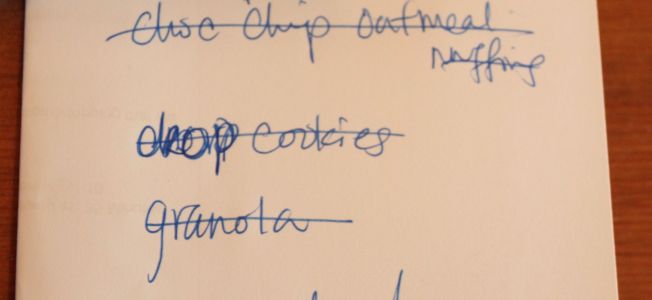 choc chip oatmeal
muffins
drop cookies
granola